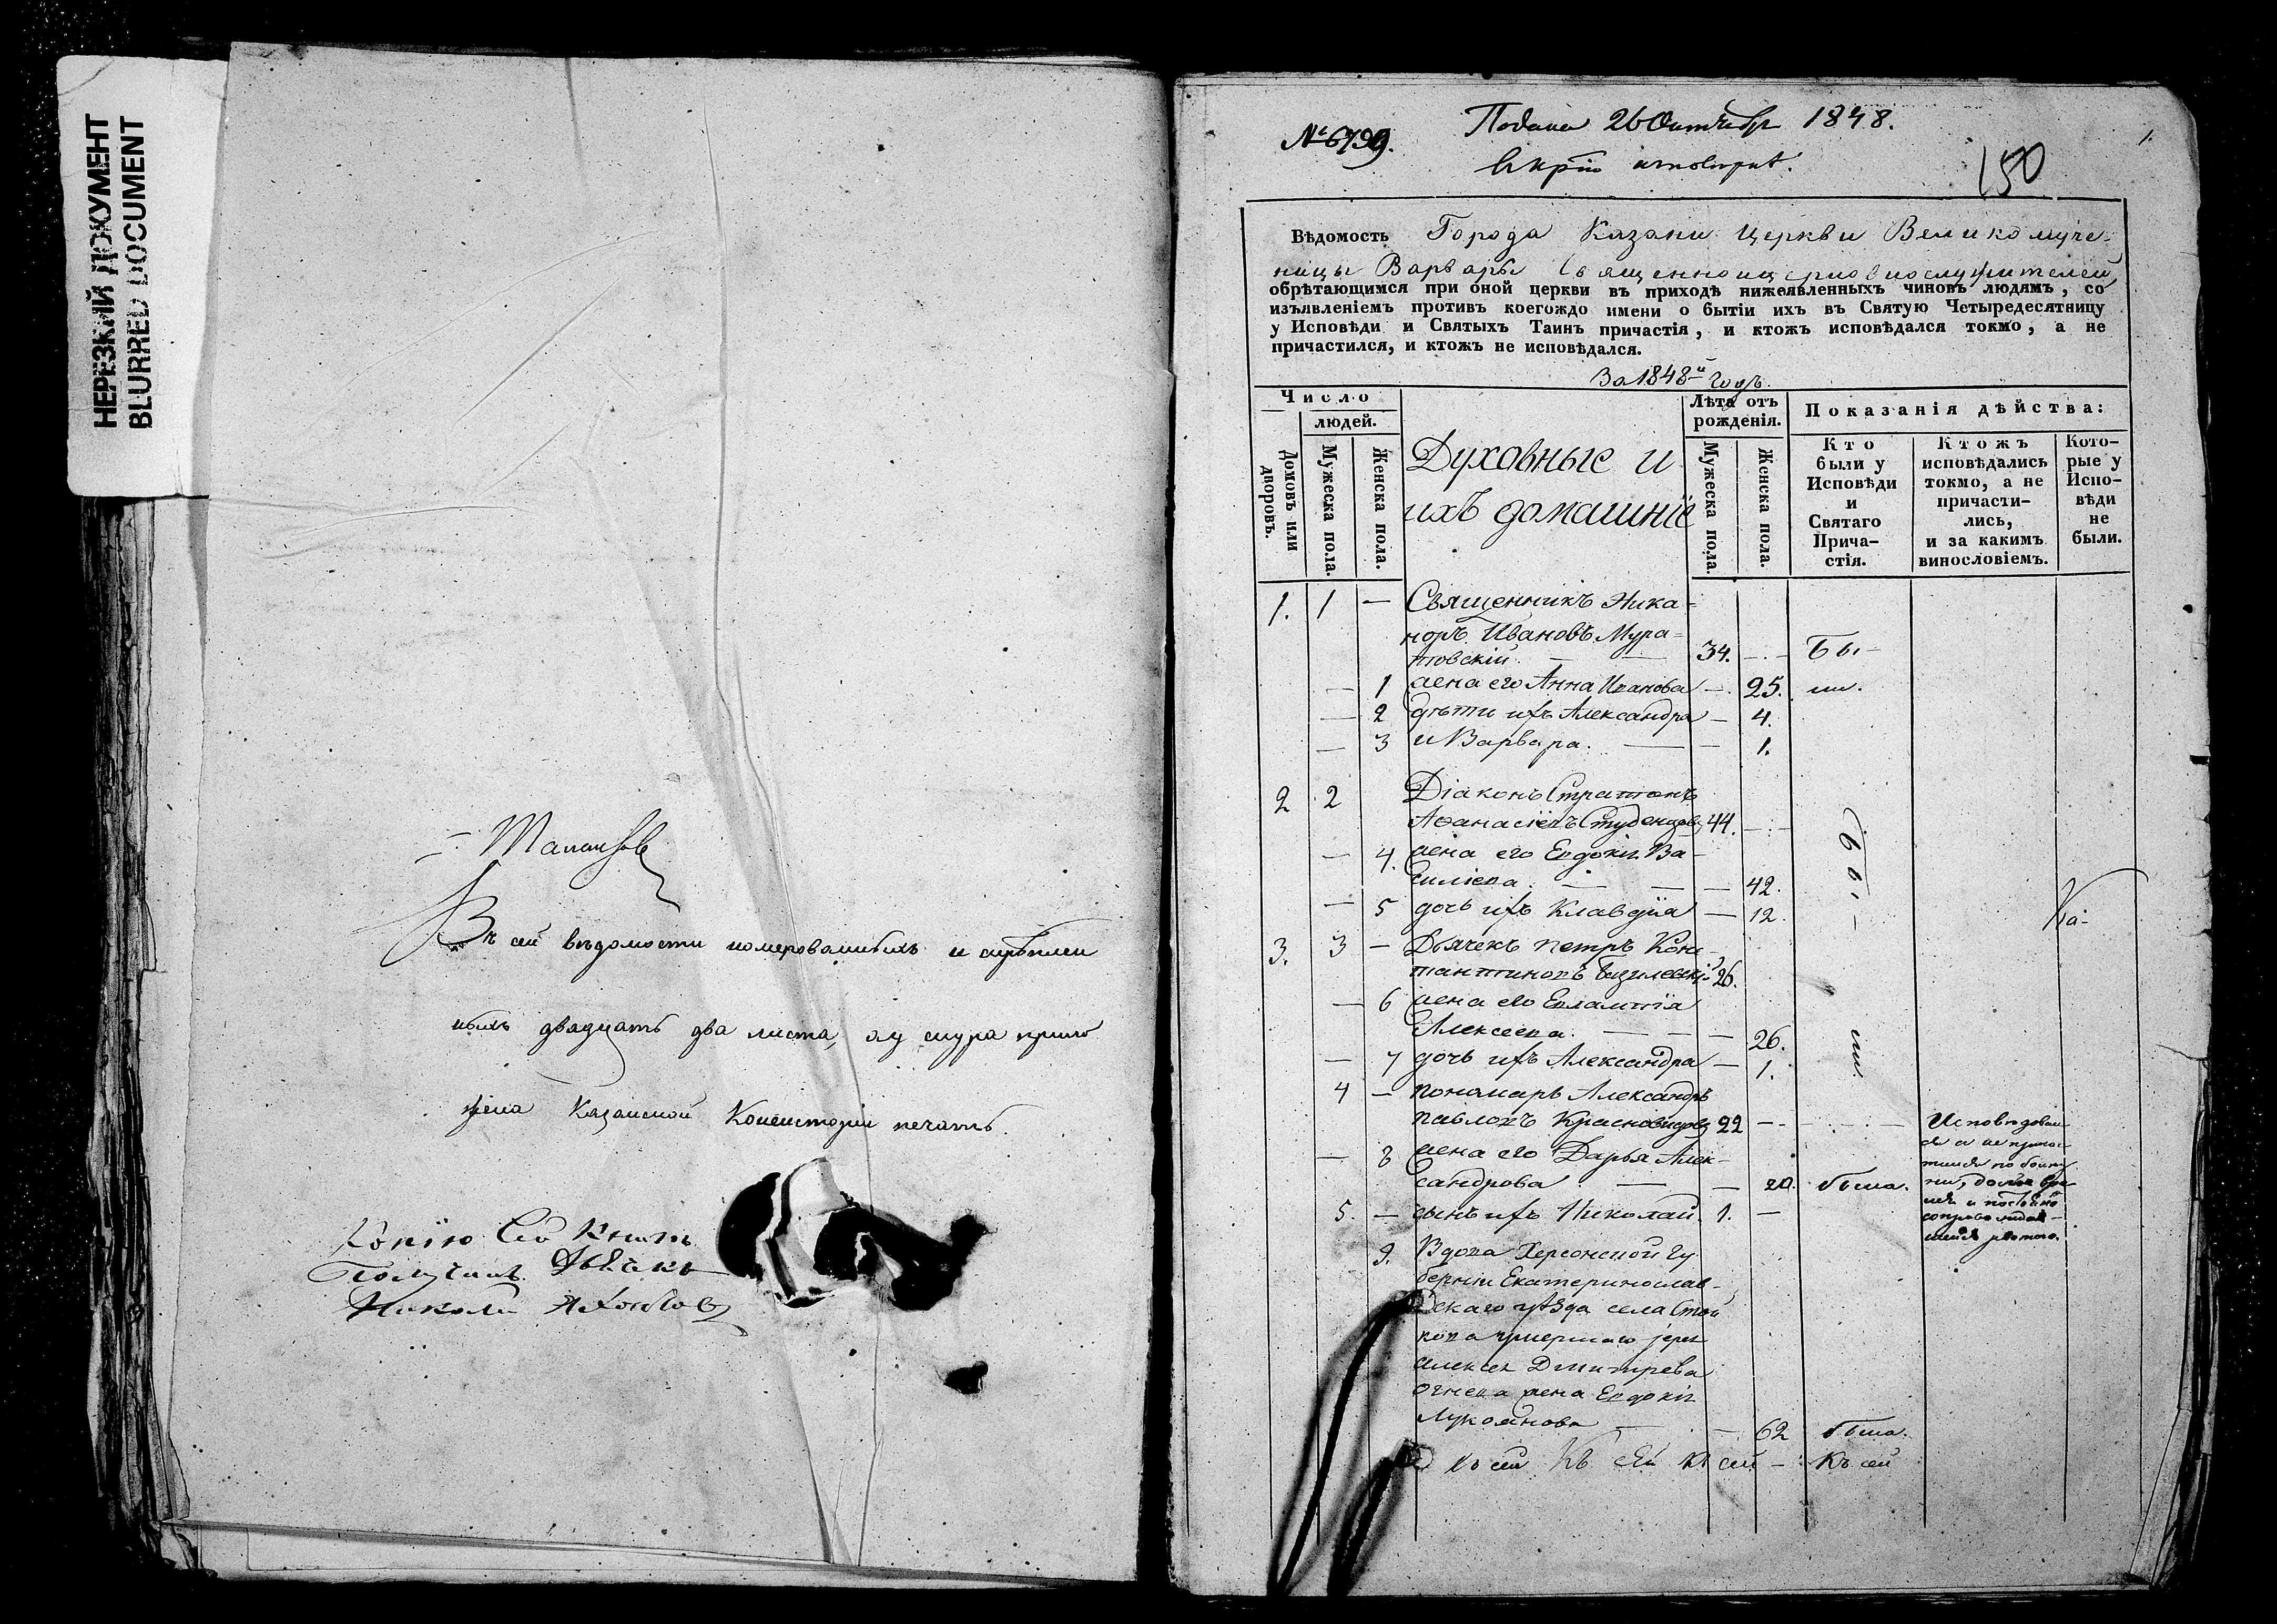 НЕРЕЗКИЙ ДОКУМЕНТ
BLURRED DOCUMENT
Въ сей ведомости номерованныхъ и скреплен
ныхъ двадцать два листа, къ шнура прило
жена Казанской Консисторіи печать.
Копію Съ Книгъ
Получилъ Дьячекъ
Николай
№ 6799.
Подана 26 Октября 1848.
150
1.
Вѣдомость Города Казани Церкви Великомуче-
ницы Варвары Священноицерковнослужителей,
обрѣтающимся при оной церкви въ приходѣ нижеявленныхъ чиновъ людямъ, со
изъявленіемъ противъ коегождо имени о бытіи ихъ въ Святую Четыредесятницу
у Исповѣди и Святыхъ Таинъ причастія, и ктожъ исповѣдался токмо, а не
причастился, и ктожъ не исповѣдался.
За 1848й годъ.
Число
людей.
Домовъ или дворовъ.
Мужеска пола.
Женска пола.
Духовные и
ихъ домашніе
Лѣта отъ
рожденія.
Мужеска пола.
Женска пола.
Показанія дѣйства:
Кто
были у
Исповѣди
и
Святаго
Прича-
стія.
Ктожъ
исповѣдались
токмо, а не
причасти-
лись,
и за какимъ
винословіемъ.
Кото-
рые у
Испо-
вѣди
не
были.
1. 1 — Священникъ Ника-
норъ Ивановъ Мура-
товскій. — — 34. — Бы-
— 1 жена его Анна Иванова — 25. ли.
— 2 дѣти ихъ Александра — 4.
— 3 и Варвара. — — 1.
2 2 Діаконъ Стратонъ
Аѳанасіевъ Студенцовъ 44. —
— 4. жена его Евдокія Ва-
силіева. — — — 42. Бы-
— 5 дочь ихъ Клавдія — 12.
3. 3 — Дьячекъ Петръ Конс-
тантиновъ Базилевскій 26.
— 6 жена его Евлампія
Алексеева. — — — 26. ли.
— 7 дочь ихъ Александра — 1.
4 — пономарь Александръ
Павловъ Красновидовъ 22 — — Исповедовал
ся а не прича-
— 8 жена его Дарья Алек-
сандрова — — 20. была.
5. — сынъ ихъ Николай. 1. —
9. Вдова Херсонской Гу
берніи Екатеринослав-
скаго уѣзда села Стой
кова умершаго Іерея
Алексея Дмитрева
Огнева жена Евдокія
Лукоянова — — 62 была.
Къ сей Къ сей Къ сей — Къ сей